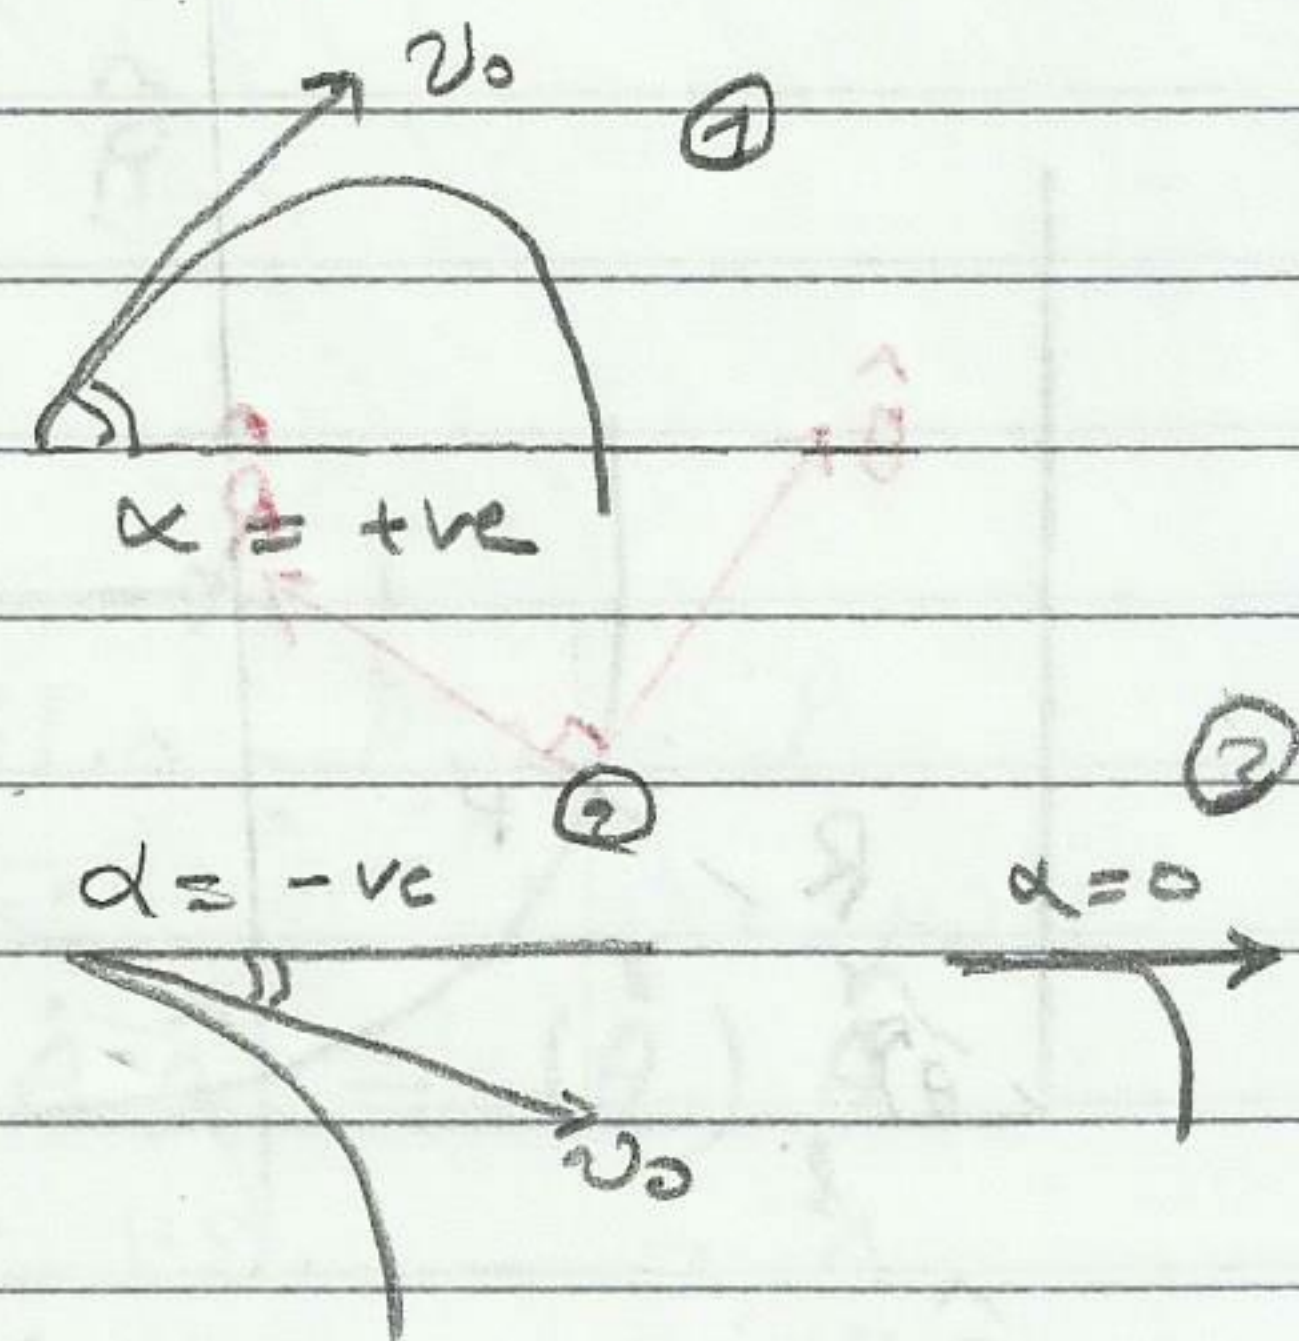 v₀
①
α = +ve
②
③
α = -ve
α = 0
v₀